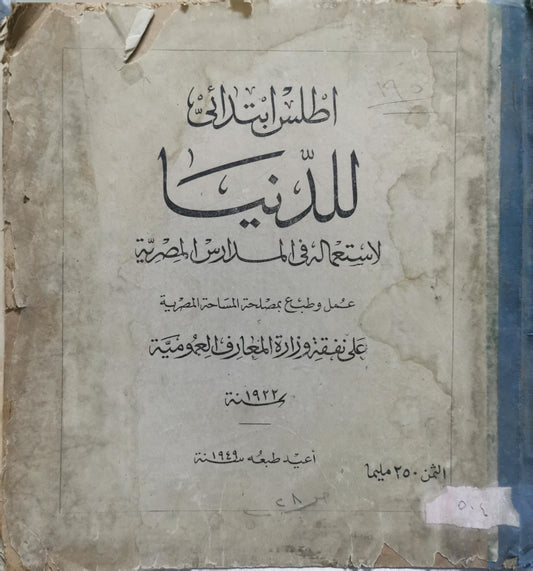 اطلس ابتدائى
للدّنيا
لاستعماله فى المدارس المصريّة
عمل وطبع بمصلحة المساحة المصرية
على نفقة وزارة المعارف العموميّة
سنة ١٩٢٢
أعيد طبعه سنة ١٩٤٩
الثمن ٢٥٠ مليما
٥٠٤
٢٨